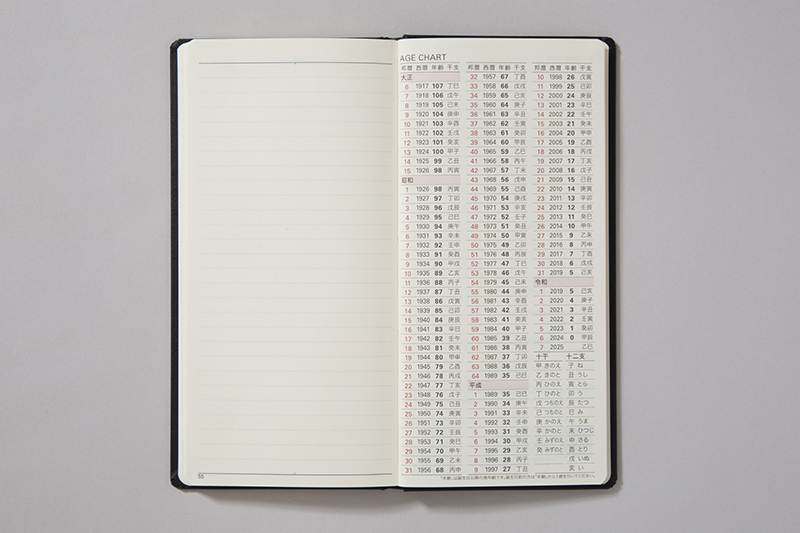 AGE CHART
邦暦 西暦 年齢 干支
大正
6 1917 107 丁巳
7 1918 106 戊午
8 1919 105 己未
9 1920 104 庚申
10 1921 103 辛酉
11 1922 102 壬戌
12 1923 101 癸亥
13 1924 100 甲子
14 1925 99 乙丑
15 1926 98 丙寅
昭和
1 1926 98 丙寅
2 1927 97 丁卯
3 1928 96 戊辰
4 1929 95 己巳
5 1930 94 庚午
6 1931 93 辛未
7 1932 92 壬申
8 1933 91 癸酉
9 1934 90 甲戌
10 1935 89 乙亥
11 1936 88 丙子
12 1937 87 丁丑
13 1938 86 戊寅
14 1939 85 己卯
15 1940 84 庚辰
16 1941 83 辛巳
17 1942 82 壬午
18 1943 81 癸未
19 1944 80 甲申
20 1945 79 乙酉
21 1946 78 丙戌
22 1947 77 丁亥
23 1948 76 戊子
24 1949 75 己丑
25 1950 74 庚寅
26 1951 73 辛卯
27 1952 72 壬辰
28 1953 71 癸巳
29 1954 70 甲午
30 1955 69 乙未
31 1956 68 丙申
邦暦 西暦 年齢 干支
32 1957 67 丁酉
33 1958 66 戊戌
34 1959 65 己亥
35 1960 64 庚子
36 1961 63 辛丑
37 1962 62 壬寅
38 1963 61 癸卯
39 1964 60 甲辰
40 1965 59 乙巳
41 1966 58 丙午
42 1967 57 丁未
43 1968 56 戊申
44 1969 55 己酉
45 1970 54 庚戌
46 1971 53 辛亥
47 1972 52 壬子
48 1973 51 癸丑
49 1974 50 甲寅
50 1975 49 乙卯
51 1976 48 丙辰
52 1977 47 丁巳
53 1978 46 戊午
54 1979 45 己未
55 1980 44 庚申
56 1981 43 辛酉
57 1982 42 壬戌
58 1983 41 癸亥
59 1984 40 甲子
60 1985 39 乙丑
61 1986 38 丙寅
62 1987 37 丁卯
63 1988 36 戊辰
64 1989 35 己巳
平成
1 1989 35 己巳
2 1990 34 庚午
3 1991 33 辛未
4 1992 32 壬申
5 1993 31 癸酉
6 1994 30 甲戌
7 1995 29 乙亥
8 1996 28 丙子
9 1997 27 丁丑
邦暦 西暦 年齢 干支
10 1998 26 戊寅
11 1999 25 己卯
12 2000 24 庚辰
13 2001 23 辛巳
14 2002 22 壬午
15 2003 21 癸未
16 2004 20 甲申
17 2005 19 乙酉
18 2006 18 丙戌
19 2007 17 丁亥
20 2008 16 戊子
21 2009 15 己丑
22 2010 14 庚寅
23 2011 13 辛卯
24 2012 12 壬辰
25 2013 11 癸巳
26 2014 10 甲午
27 2015 9 乙未
28 2016 8 丙申
29 2017 7 丁酉
30 2018 6 戊戌
31 2019 5 己亥
令和
1 2019 5 己亥
2 2020 4 庚子
3 2021 3 辛丑
4 2022 2 壬寅
5 2023 1 癸卯
6 2024 0 甲辰
7 2025 乙巳
十干 十二支
甲 きのえ 子 ね
乙 きのと 丑 うし
丙 ひのえ 寅 とら
丁 ひのと 卯 う
戊 つちのえ 辰 たつ
己 つちのと 巳 み
庚 かのえ 午 うま
辛 かのと 未 ひつじ
壬 みずのえ 申 さる
癸 みずのと 酉 とり
戌 いぬ
亥 い
55